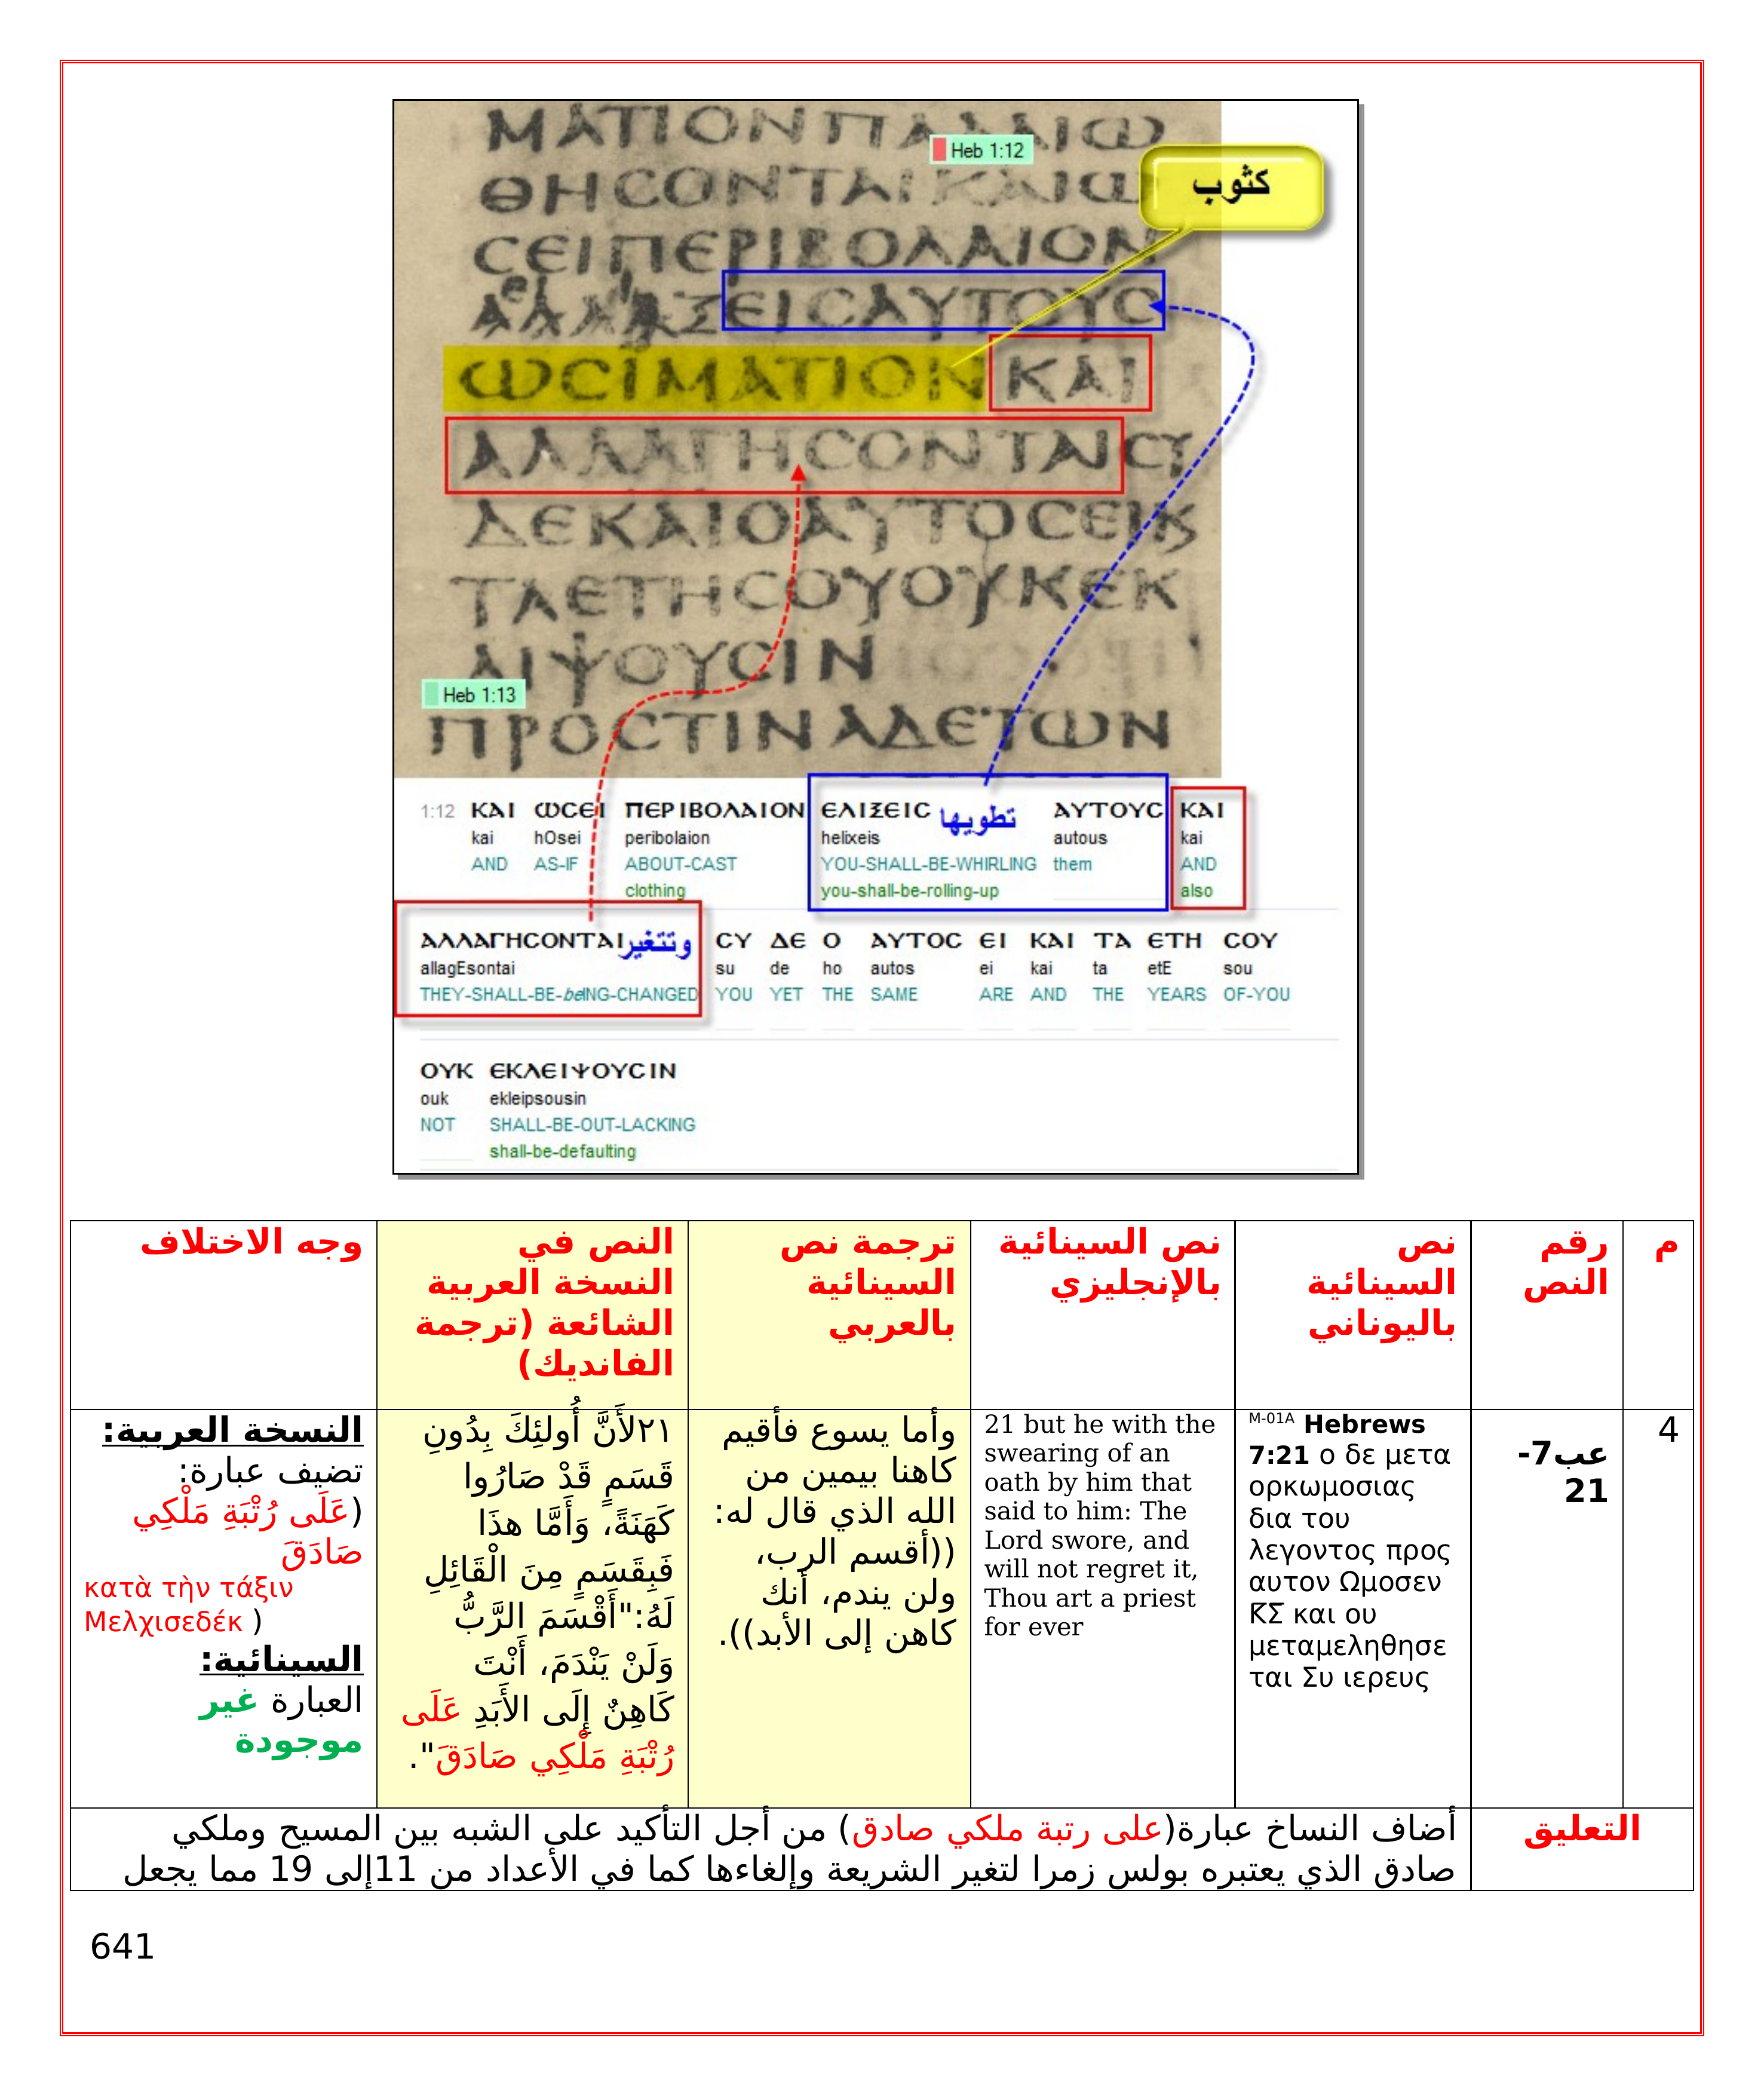 ΜΑΤΙΟΝΠΑΛΑΙΩ
Heb 1:12
كثوب
ΘΗCΟΝΤΑΙΚΑΙΩ
CΕΙΠΕΡΙΒΟΛΑΙΟΝ
ΕΙCΑΥΤΟΥC
ΩCΪΜΑΤΙΟΝΚΑΙ
ΑΛΛΑΓΗCΟΝΤΑΙCΥ
ΔΕΚΑΙΟΑΥΤΟCΕΙΚ
ΤΑΕΤΗCΟΥΟΥΚΕΚ
ΛΙΨΟΥCΙΝ
Heb 1:13
ΠΡΟCΤΙΝΑΔΕΤΩΝ
1:12 ΚΑΙ ΩCΕΙ ΠΕΡΙΒΟΛΑΙΟΝ ΕΛΙΞΕΙC تطويها ΑΥΤΟΥC ΚΑΙ
kai hOsei peribolaion helixeis autous kai
AND AS-IF ABOUT-CAST YOU-SHALL-BE-WHIRLING them AND
clothing you-shall-be-rolling-up also
ΑΛΛΑΓΗCΟΝΤΑΙ وتتغير CΥ ΔΕ Ο ΑΥΤΟC ΕΙ ΚΑΙ ΤΑ ΕΤΗ CΟΥ
allagEsontai su de ho autos ei kai ta etE sou
THEY-SHALL-BE-beING-CHANGED YOU YET THE SAME ARE AND THE YEARS OF-YOU
ΟΥΚ ΕΚΛΕΙΨΟΥCΙΝ
ouk ekleipsousin
NOT SHALL-BE-OUT-LACKING
shall-be-defaulting
م
رقم
النص
نص
السينائية
باليوناني
نص السينائية
بالإنجليزي
ترجمة نص
السينائية
بالعربي
النص في
النسخة العربية
الشائعة (ترجمة
الفانديك)
وجه الاختلاف
4
عب7-
21
M-01A Hebrews
7:21 ο δε μετα
ορκωμοσιας
δια του
λεγοντος προς
αυτον Ωμοσεν
Κ̅Σ̅ και ου
μεταμεληθησε
ται Συ ιερευς
21 but he with the
swearing of an
oath by him that
said to him: The
Lord swore, and
will not regret it,
Thou art a priest
for ever
وأما يسوع فأقيم
كاهنا بيمين من
الله الذي قال له:
((أقسم الرب،
ولن يندم، أنك
كاهن إلى الأبد)).
٢١لأَنَّ أُولئِكَ بِدُونِ
قَسَمٍ قَدْ صَارُوا
كَهَنَةً، وَأَمَّا هذَا
فَبِقَسَمٍ مِنَ الْقَائِلِ
لَهُ:"أَقْسَمَ الرَّبُّ
وَلَنْ يَنْدَمَ، أَنْتَ
كَاهِنٌ إِلَى الأَبَدِ عَلَى
رُتْبَةِ مَلْكِي صَادَقَ".
النسخة العربية:
تضيف عبارة:
(عَلَى رُتْبَةِ مَلْكِي
صَادَقَ
κατὰ τὴν τάξιν
Μελχισεδέκ )
السينائية:
العبارة غير
موجودة
التعليق
أضاف النساخ عبارة(على رتبة ملكي صادق) من أجل التأكيد على الشبه بين المسيح وملكي
صادق الذي يعتبره بولس زمرا لتغير الشريعة وإلغاءها كما في الأعداد من 11إلى 19 مما يجعل
641